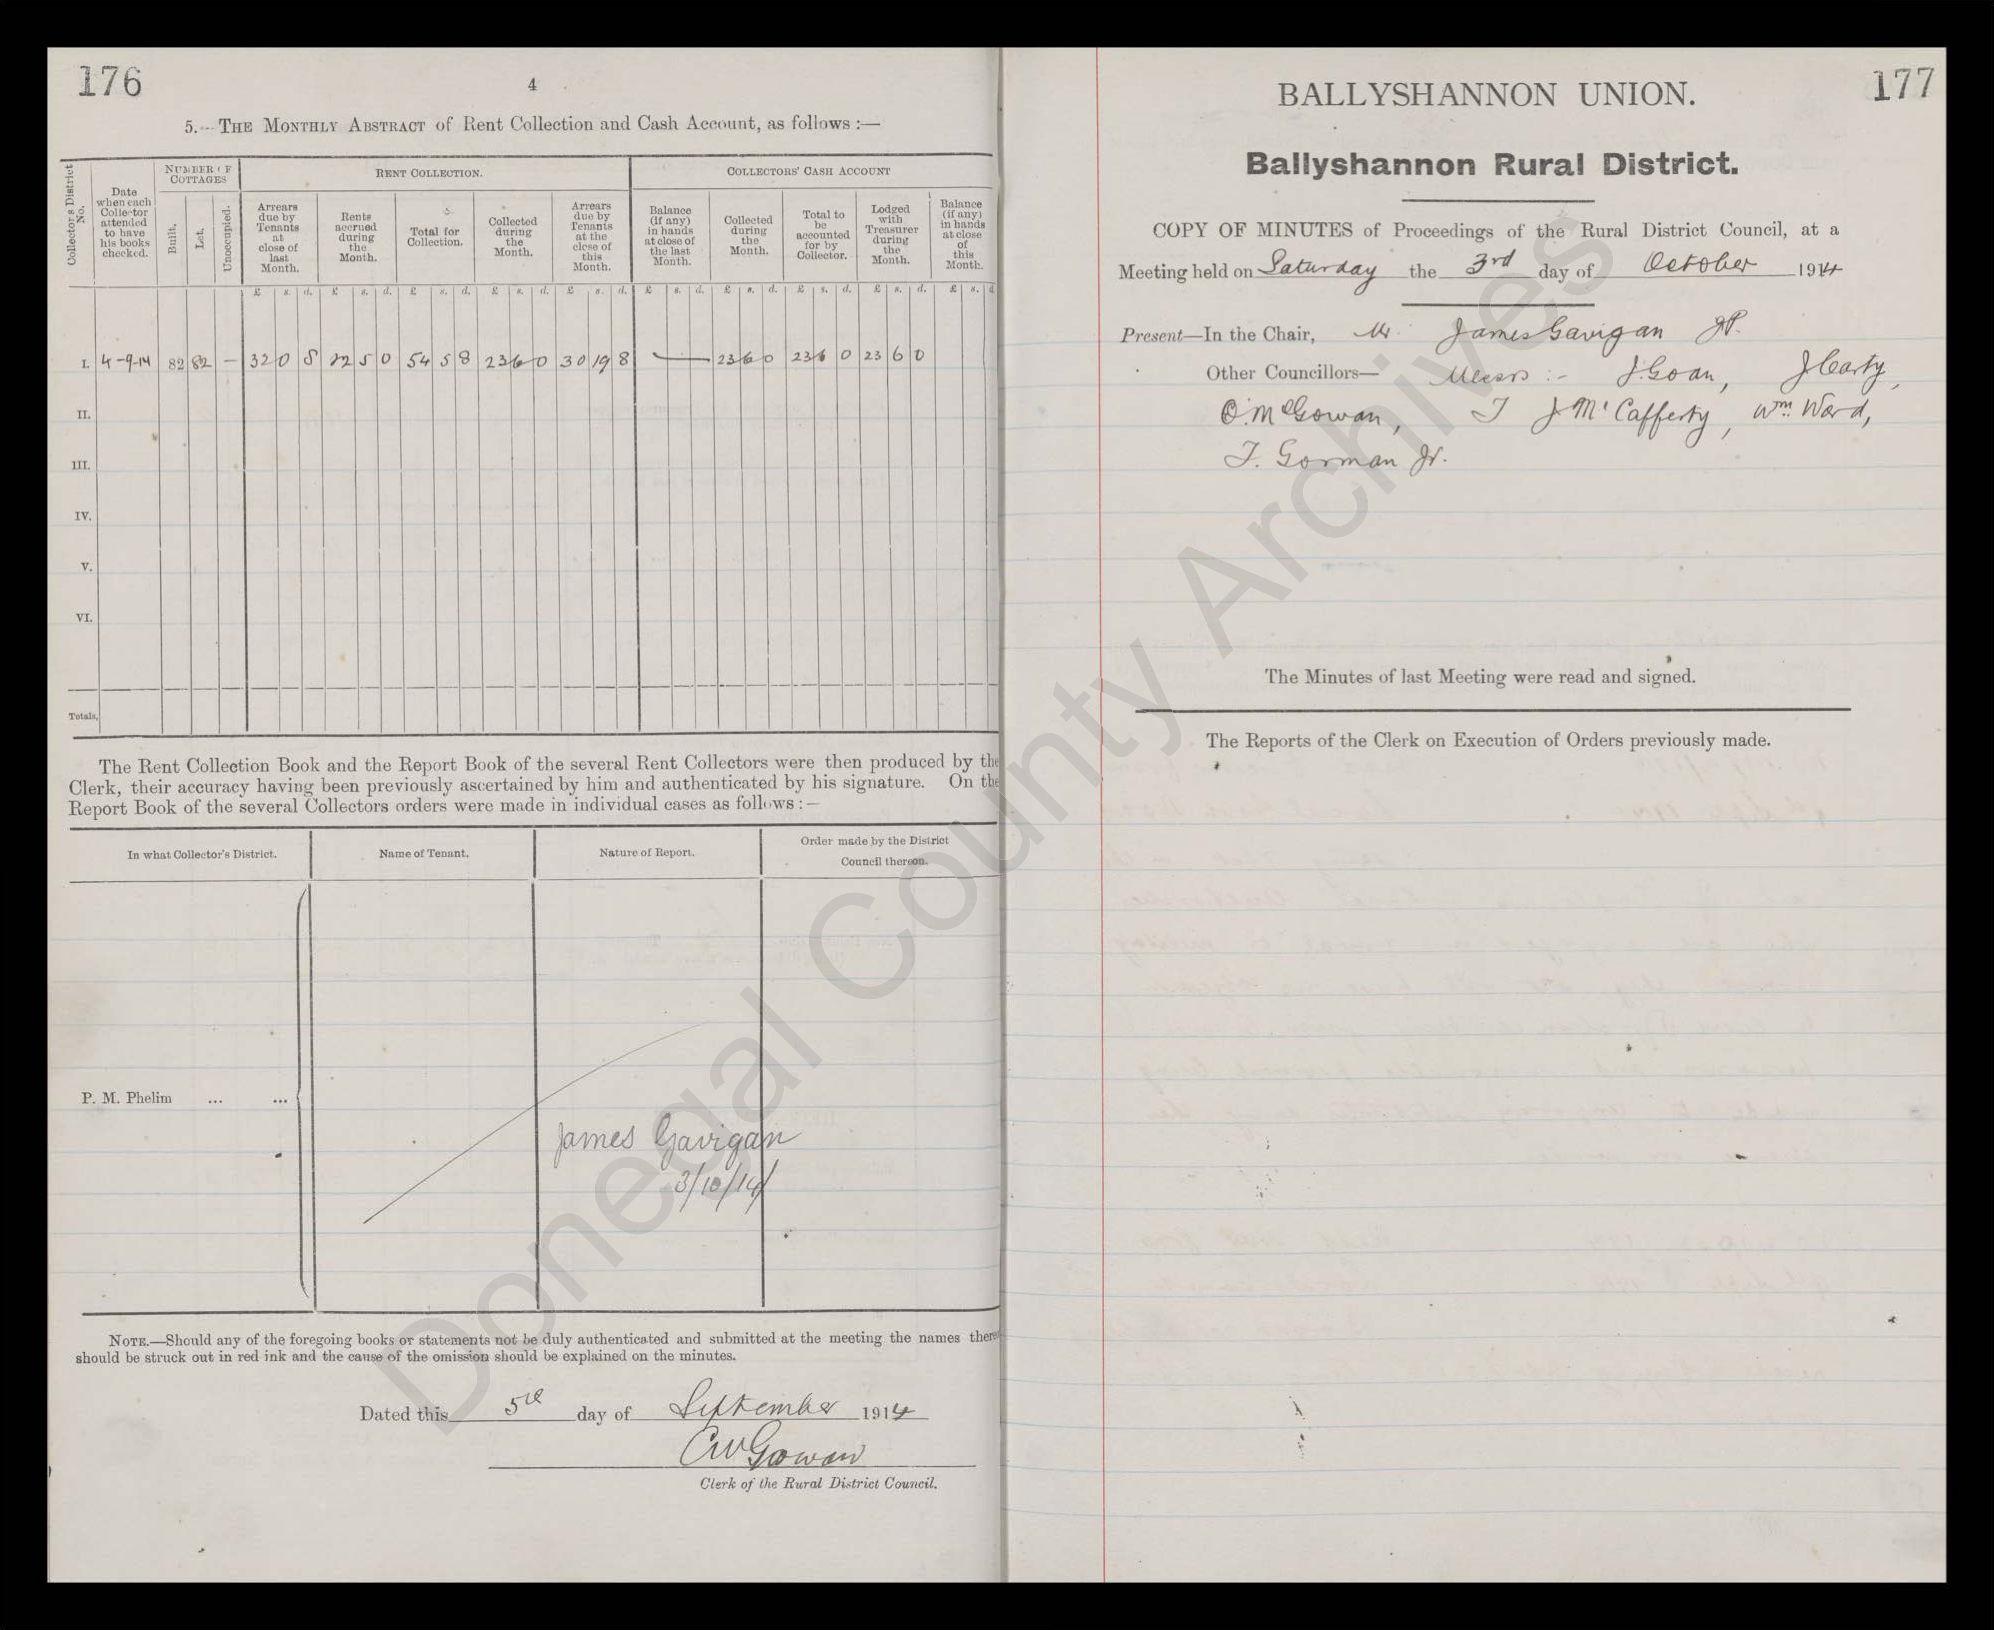 176
4
5.-- THE MONTHLY ABSTRACT of Rent Collection and Cash Account, as follows :—
Collector's District No.
Date when each Collector attended to have his books checked.
NUMBER OF COTTAGES
Built.
Let.
Unoccupied.
RENT COLLECTION.
Arrears due by Tenants at close of last Month.
Rents accrued during the Month.
Total for Collection.
Collected during the Month.
Arrears due by Tenants at the close of this Month.
COLLECTORS' CASH ACCOUNT
Balance (if any) in hands at close of the last Month.
Collected during the Month.
Total to be accounted for by Collector.
Lodged with Treasurer during the Month.
Balance (if any) in hands at close of this Month.
£ s. d. £ s. d. £ s. d. £ s. d. £ s. d. £ s. d. £ s. d. £ s. d. £ s. d. £ s. d
I. 4-9-14 82 82 — 32 0 8 22 5 0 54 5 8 23 6 0 30 19 8 — 23 6 0 23 6 0 23 6 0
II.
III.
IV.
V.
VI.
Totals,
The Rent Collection Book and the Report Book of the several Rent Collectors were then produced by the
Clerk, their accuracy having been previously ascertained by him and authenticated by his signature. On the
Report Book of the several Collectors orders were made in individual cases as follows :—
In what Collector's District.
Name of Tenant.
Nature of Report.
Order made by the District Council thereon.
P. M. Phelim ... ...
James Gavigan
3/10/14
NOTE.—Should any of the foregoing books or statements not be duly authenticated and submitted at the meeting the names there
should be struck out in red ink and the cause of the omission should be explained on the minutes.
Dated this 5th day of September 1914
CWGowan
Clerk of the Rural District Council.
177
BALLYSHANNON UNION.
Ballyshannon Rural District.
COPY OF MINUTES of Proceedings of the Rural District Council, at a
Meeting held on Saturday the 3rd day of October 1914
Present—In the Chair, Mr James Gavigan JP.
Other Councillors— Messrs :- J. Goan, J Carty,
O. McGowan, T J McCafferty, Wm Ward,
T. Gorman Jr.
The Minutes of last Meeting were read and signed.
The Reports of the Clerk on Execution of Orders previously made.
Donegal County Archives